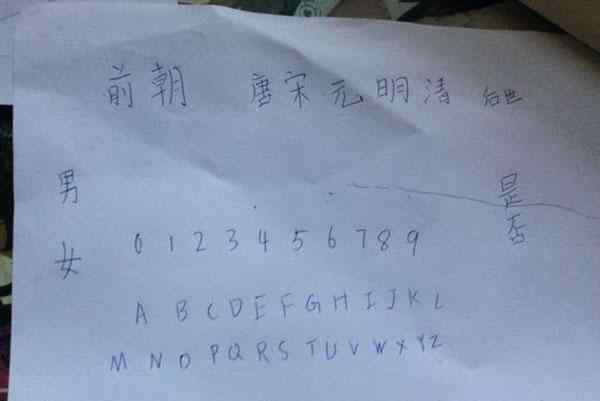 前朝 唐宋元明清 后世
男 是
女 0 1 2 3 4 5 6 7 8 9 否
A B C D E F G H I J K L
M N O P Q R S T U V W X Y Z